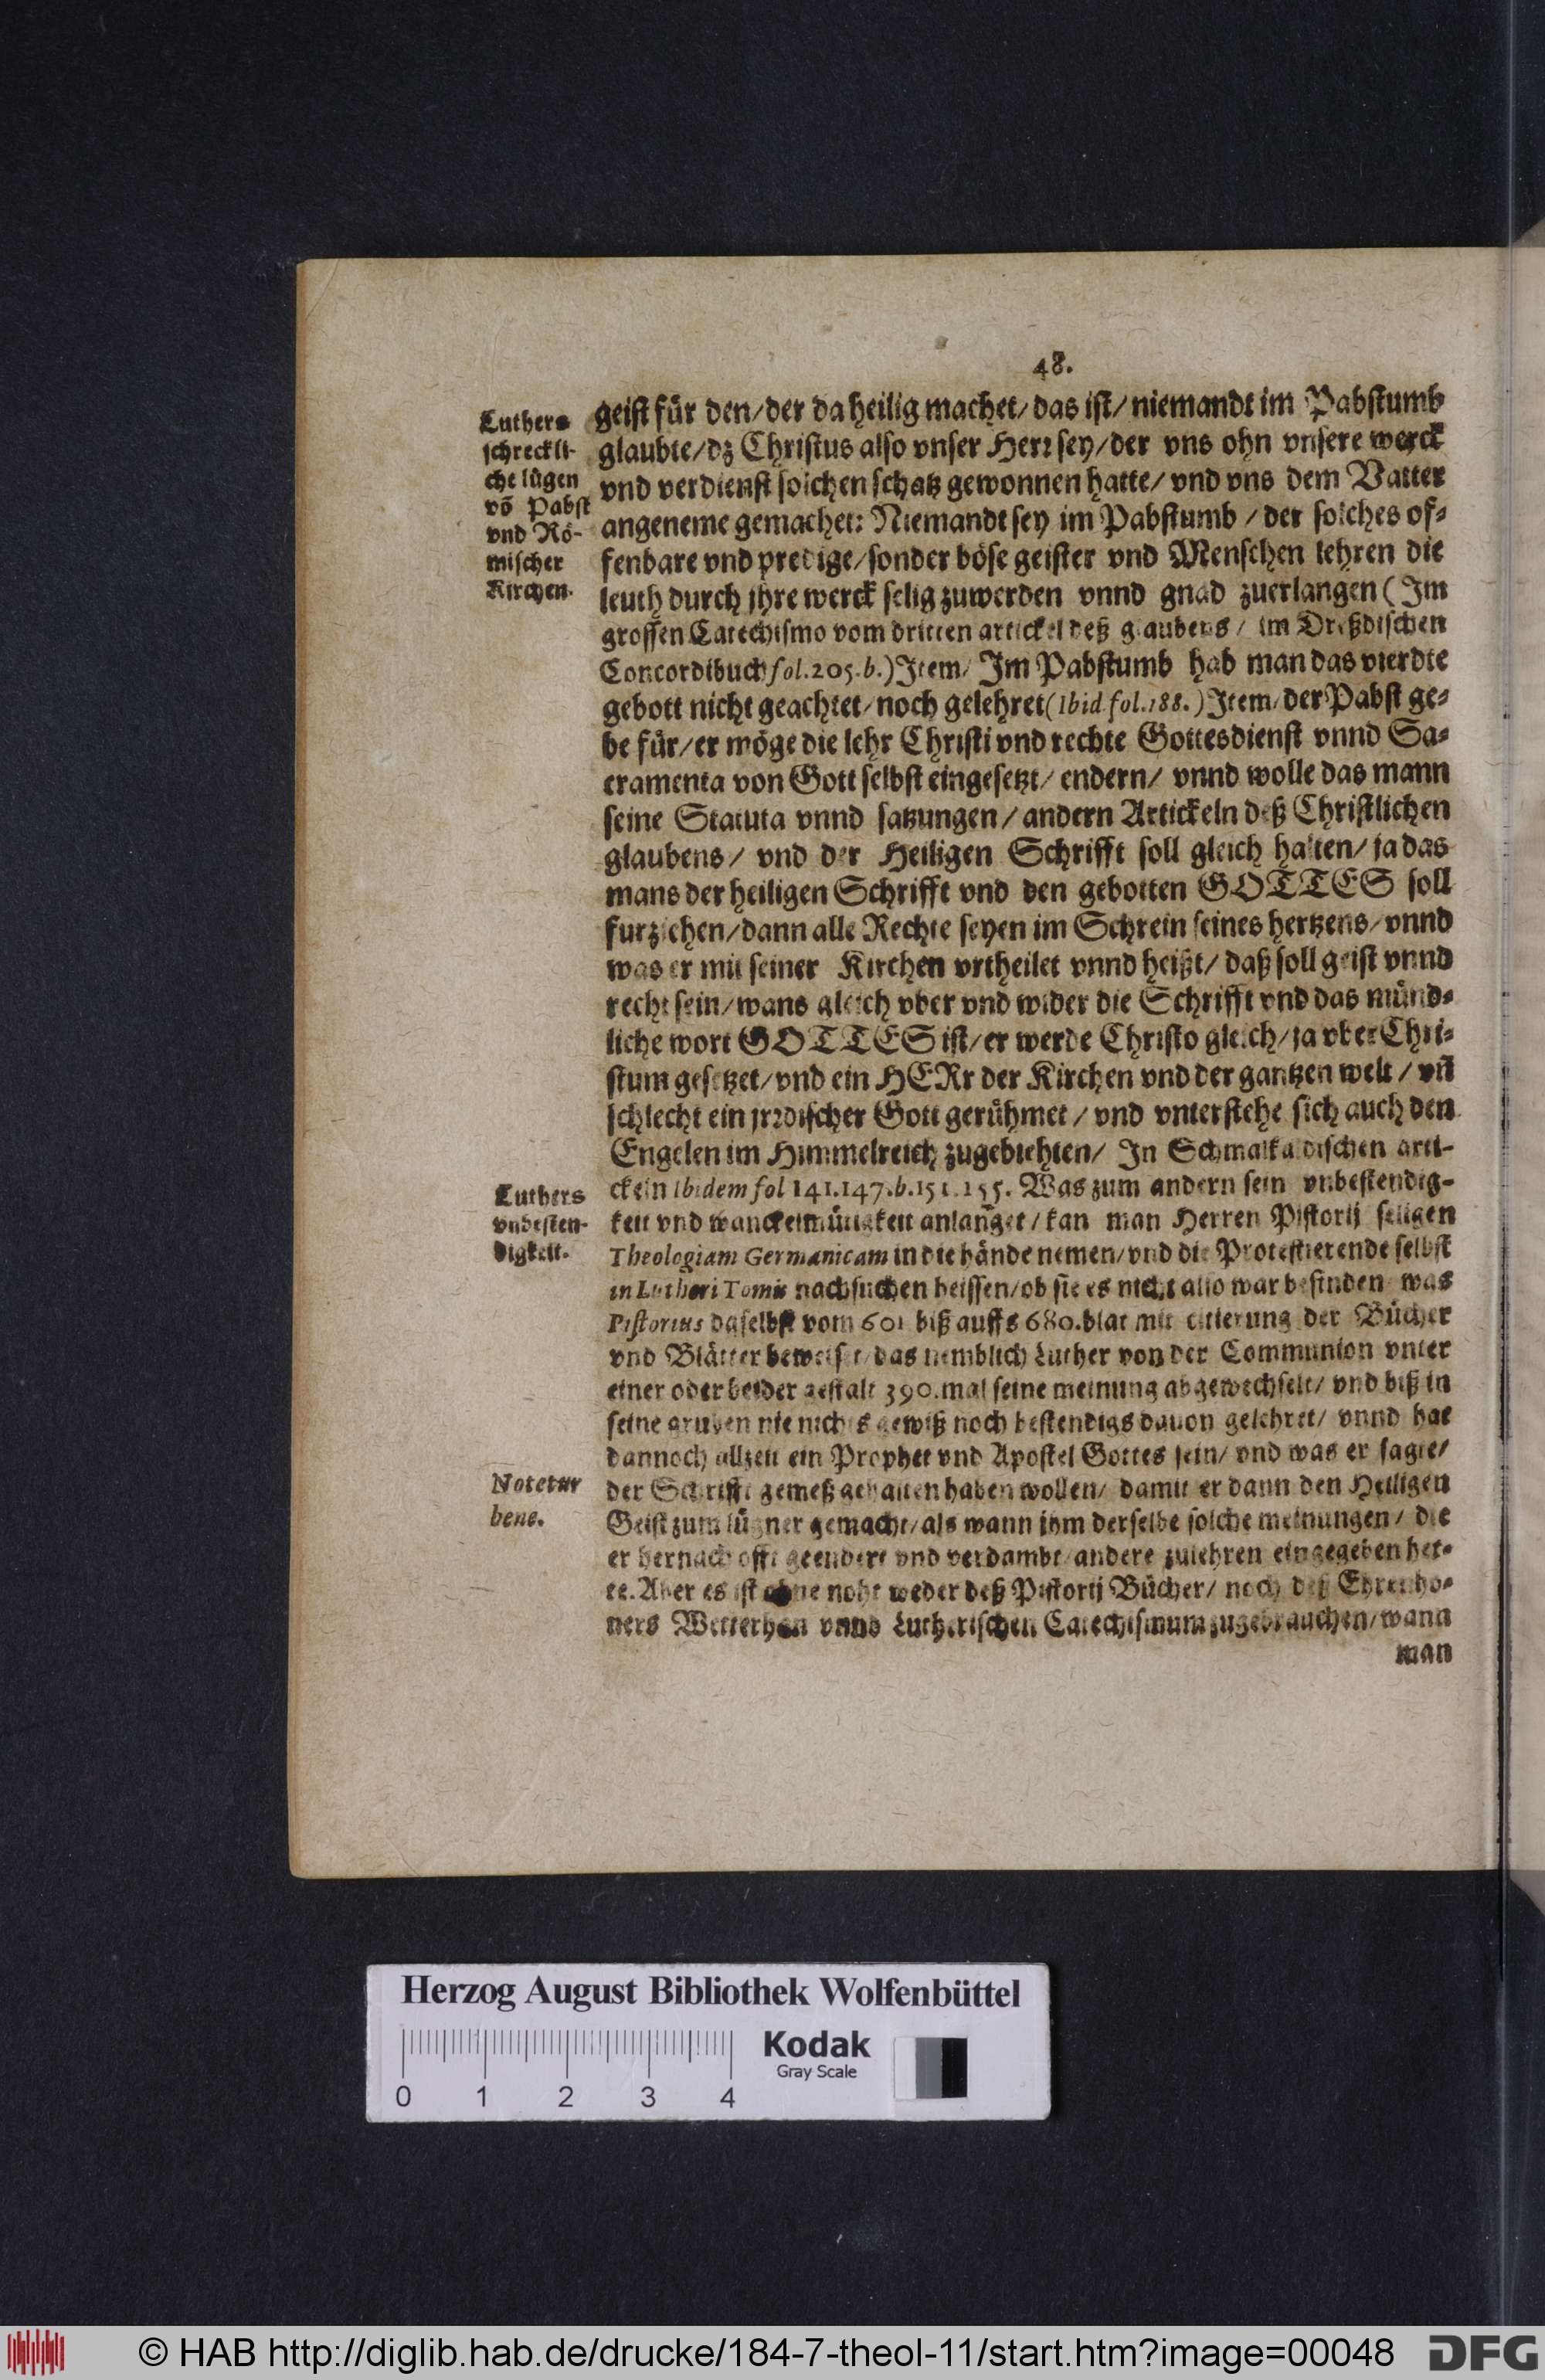 48.
Luthers
schreckli-
che lügen
võ Pabst
vnd Rö-
mischer
Kirchen.
geist für den/der da heilig machet/das ist/niemandt im Pabstumb
glaubte/dz Christus also vnser Herr sey/der vns ohn vnsere werck
vnd verdienst solchen schatz gewonnen hatte/vnd vns dem Vatter
angeneme gemachet: Niemandt sey im Pabstumb/der solches of-
fenbare vnd predige/sonder böse geister vnd Menschen lehren die
leuth durch jhre werck selig zuwerden vnnd gnad zuerlangen (Im
grossen Catechismo vom dritten artickel deß glaubens/ im Dreßdischen
Concordibuch fol.205.b.) Item/ Im Pabstumb hab man das vierdte
gebott nicht geachtet/noch gelehret (Ibid fol.188.) Item/der Pabst ge-
be für/er möge die lehr Christi vnd rechte Gottesdienst vnnd Sa-
cramenta von Gott selbst eingesetzt/ endern/ vnnd wolle das mann
seine Statuta vnnd satzungen/andern Artickeln deß Christlichen
glaubens/ vnd der Heiligen Schrifft soll gleich halten/ja das
mans der heiligen Schrifft vnd den gebotten GOTTES soll
furziehen/dann alle Rechte seyen im Schrein seines hertzens/vnnd
was er mit seiner Kirchen vrtheilet vnnd heißt/daß soll geist vnnd
recht sein/wans gleich vber vnd wider die Schrifft vnd das münd-
liche wort GOTTES ist/er werde Christo gleich/ja vber Chri-
stum gesetzet/vnd ein HERr der Kirchen vnd der gantzen welt/vñ
schlecht ein jrrdischer Gott gerühmet/vnd vnterstehe sich auch den
Engelen im Himmelreich zugebiehten/ In Schmalkaldischen arti-
ckeln Ibidem fol 141.147.b.151.155. Was zum andern sein vnbestendig-
Luthers
vnbesten-
digkeit.
keit vnd wanckelmütigkeit anlanget/kan man Herren Pistorij seligen
Theologiam Germanicam in die hände nemen/vnd die Protestierende selbst
in Lutheri Tomis nachsuchen heissen/ob sie es nicht also war befinden was
Pistorius daselbst vom 601 biß auffs 680.blat mit citierung der Bücher
vnd Blätter beweiset/das nemblich Luther von der Communion vnter
einer oder beider gestalt 390.mal seine meinung abgewechselt/ vnd biß in
seine gruben nie nichts gewiß noch bestendigs dauon gelehret/ vnnd hat
dannoch allzeit ein Prophet vnd Apostel Gottes sein/ vnd was er sagte/
Notetur
bene.
der Schrifft gemeß gehalten haben wollen/ damit er dann den Heiligen
Geist zum lügner gemacht/als wann jhm derselbe solche meinungen/ die
er hernach offt geendert vnd verdambt/andere zulehren eingegeben het-
te. Aber es ist ohne noht weder deß Pistorij Bücher/ noch deß Ehrenho-
ners Wetterhan vnnd Lutherischen Catechismum zugebrauchen/wann
man
Herzog August Bibliothek Wolfenbüttel
Kodak
Gray Scale
0 1 2 3 4
© HAB http://diglib.hab.de/drucke/184-7-theol-11/start.htm?image=00048
DFG